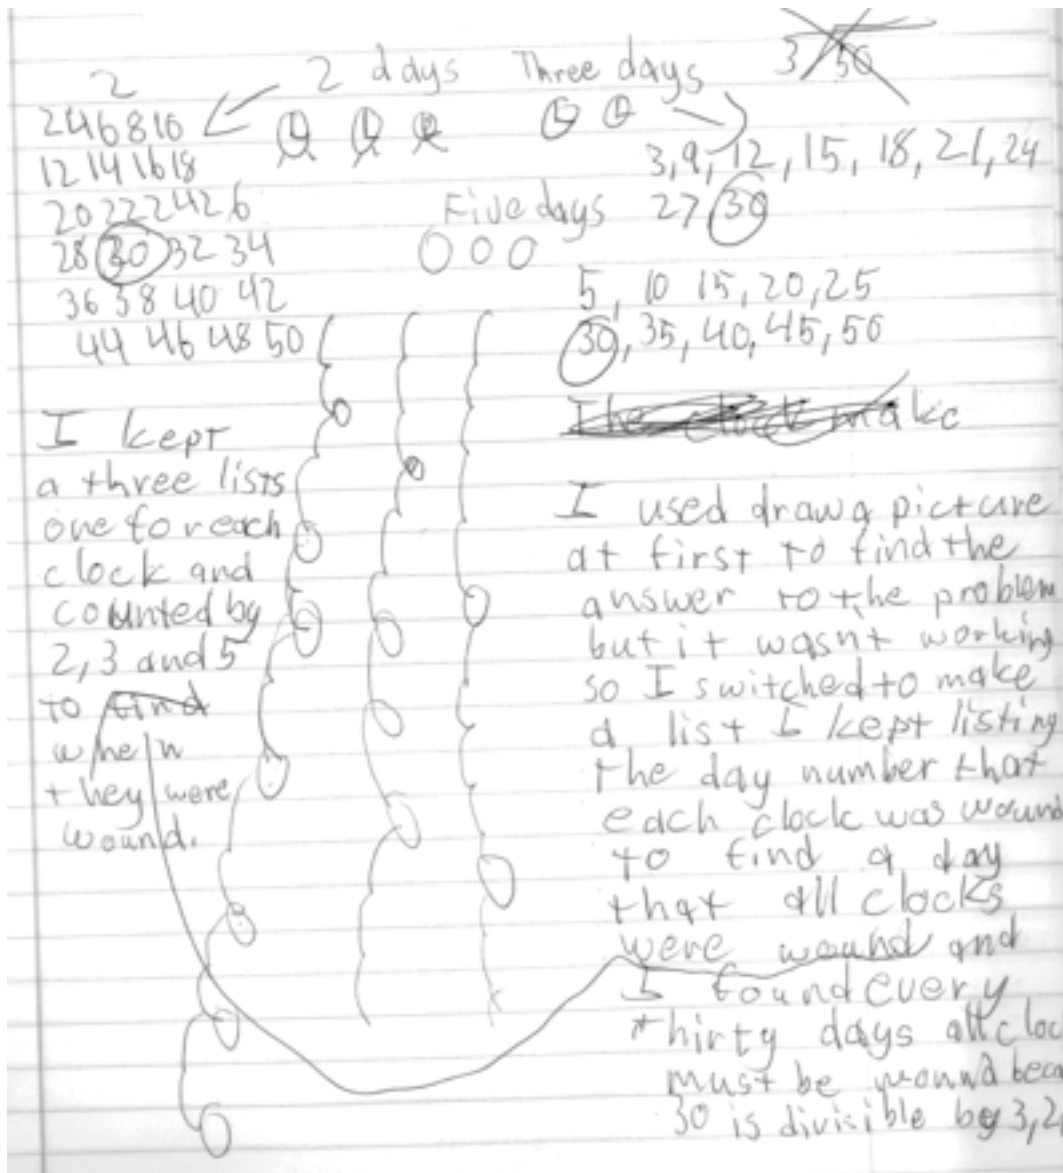 2 days Three days 3 50
2
2 4 6 8 10
12 14 16 18
20 22 24 26
28 30 32 34
36 38 40 42
44 46 48 50
3, 9, 12, 15, 18, 21, 24
27 30
Five days
5, 10 15, 20, 25
30, 35, 40, 45, 50
I kept
a three lists
one for each
clock and
counted by
2, 3 and 5
to find
when
they were
wound.
The clock make
I used draw a picture
at first to find the
answer to the problem
but it wasn't working
so I switched to make
a list I kept listing
the day number that
each clock was wound
to find a day
that all clocks
were wound and
I found every
thirty days all cloc
must be wound beca
30 is divisible by 3, 2,